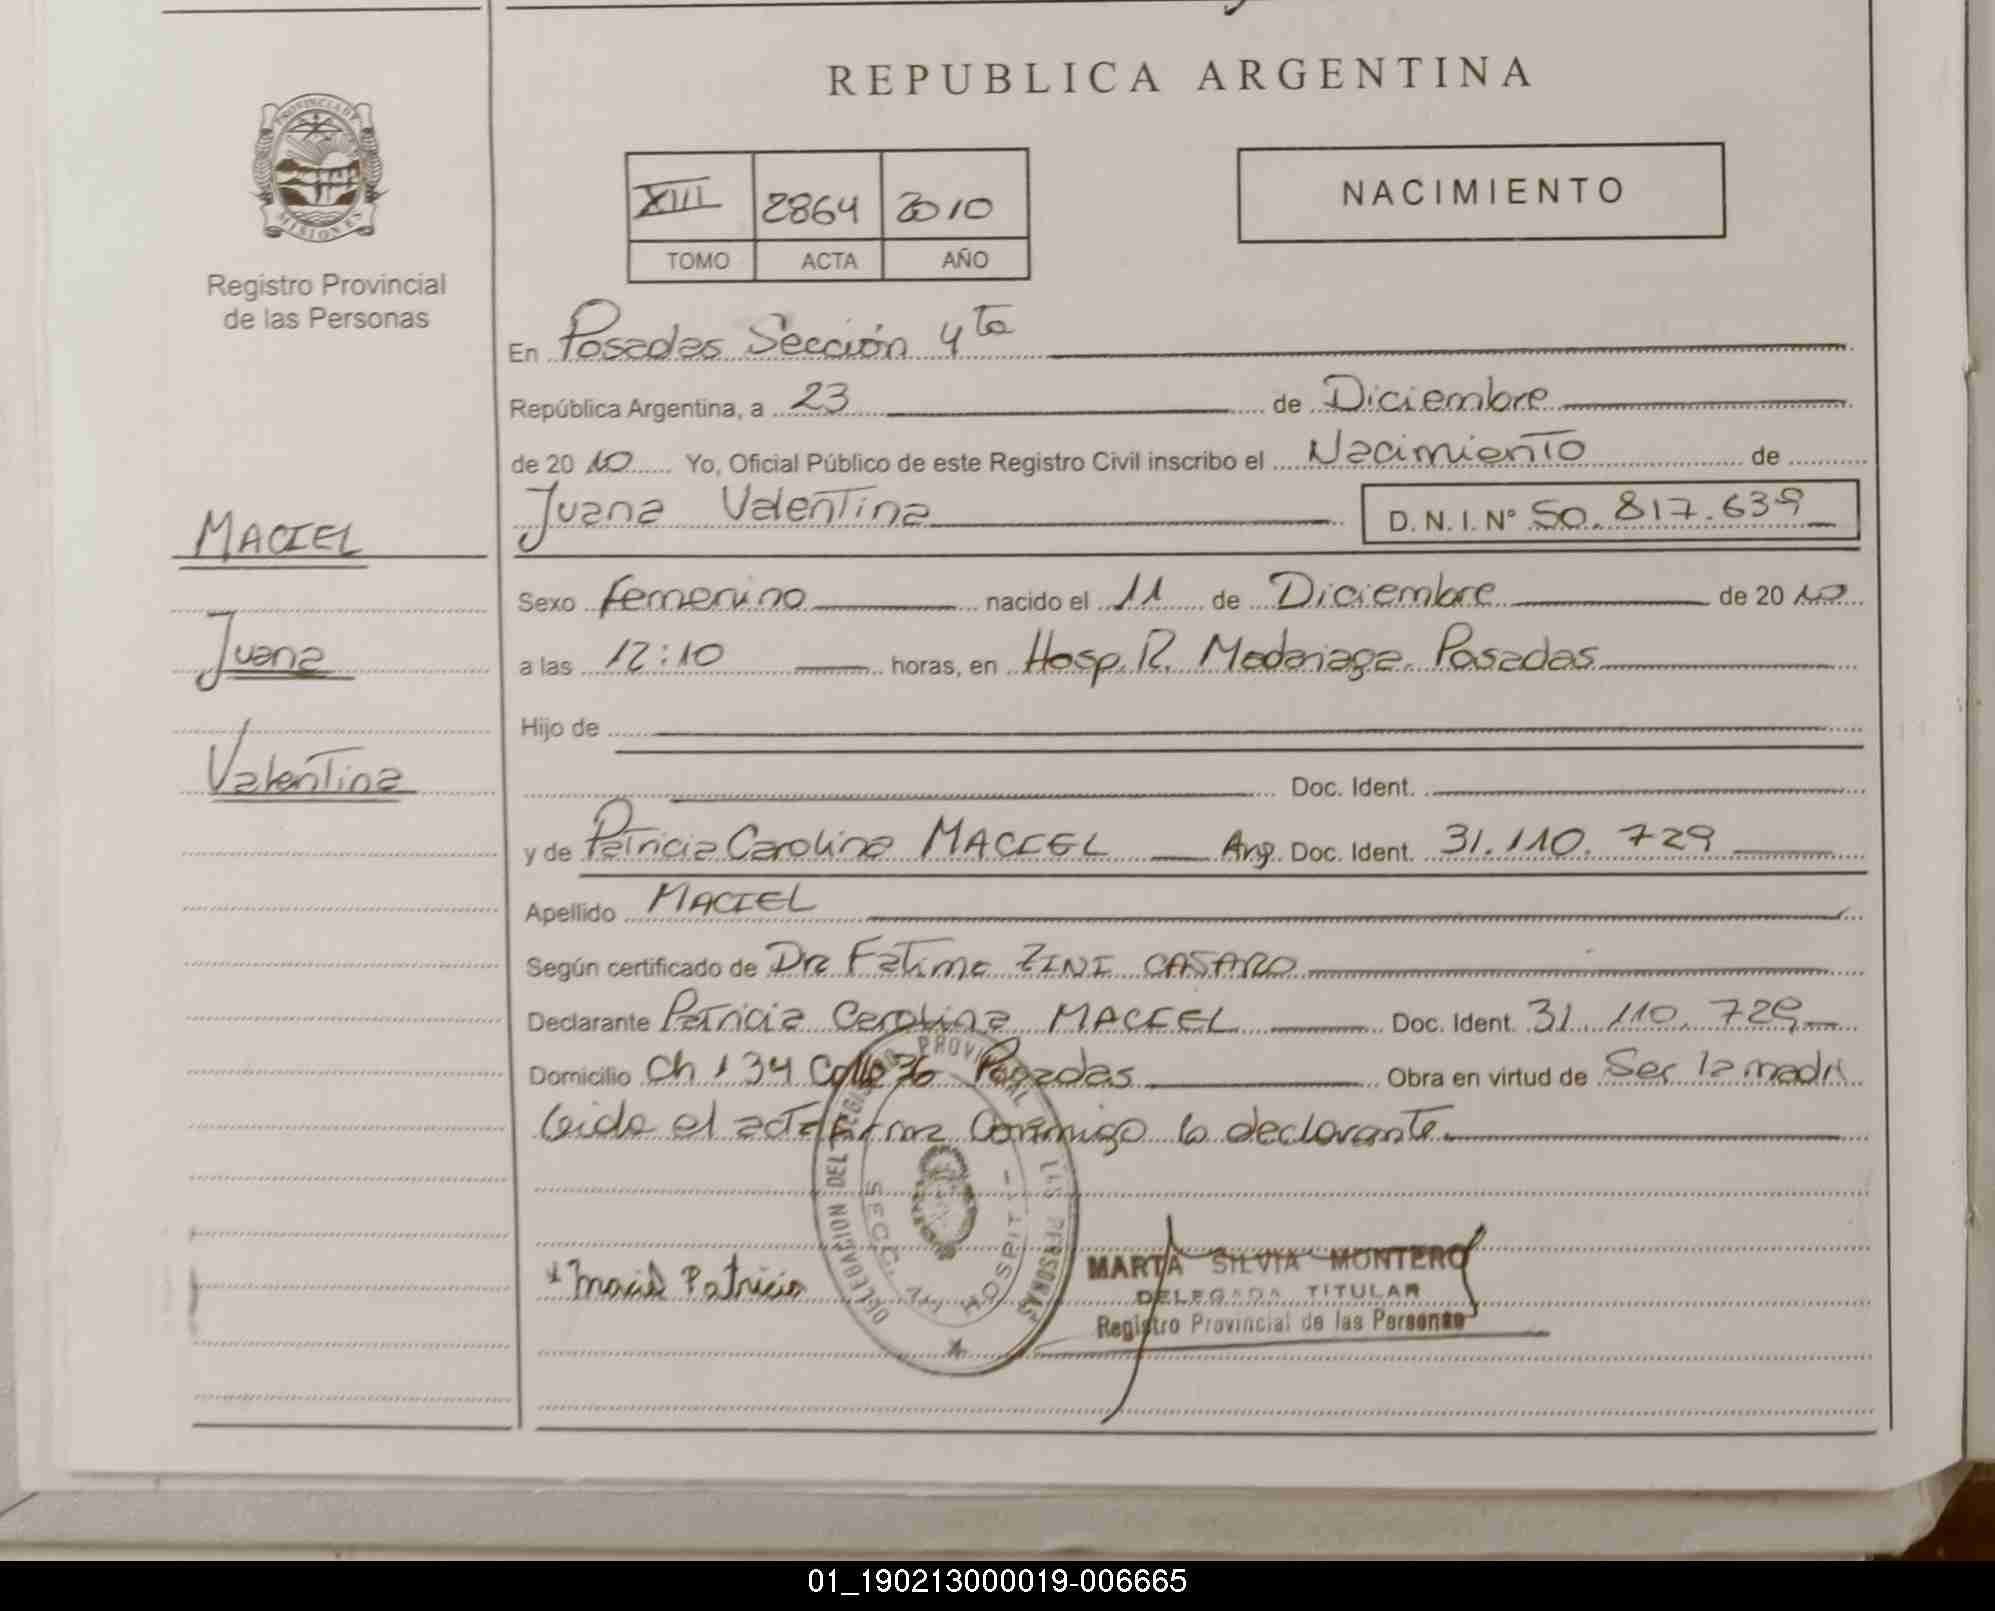 REPUBLICA ARGENTINA
PROVINCIA DE MISIONES
Registro Provincial
de las Personas
XIII 2864 2010
TOMO ACTA AÑO
NACIMIENTO
En Posadas Sección 4ta
República Argentina, a 23 de Diciembre
de 2010 Yo, Oficial Público de este Registro Civil inscribo el Nacimiento de
Juana Valentina D. N. I. Nº 50.817.639
MACIEL
Juana
Valentina
Sexo Femenino nacido el 11 de Diciembre de 2010
a las 12:10 horas, en Hosp. R. Madariaga Posadas
Hijo de
Doc. Ident.
y de Patricia Carolina MACIEL Arg. Doc. Ident. 31.110.729
Apellido MACIEL
Según certificado de Dra Fatima ZINI CASARO
Declarante Patricia Carolina MACIEL Doc. Ident. 31.110.729
Domicilio Ch 134 Calle 36 Posadas Obra en virtud de Ser la madre
Leida el acta firma Conmigo la declarante
DELEGACION DEL REGISTRO PROVINCIAL DE LAS PERSONAS
SECC. HOSPIT
x Maciel Patricia
MARTA SILVIA MONTERO
DELEGADA TITULAR
Registro Provincial de las Personas
01_190213000019-006665